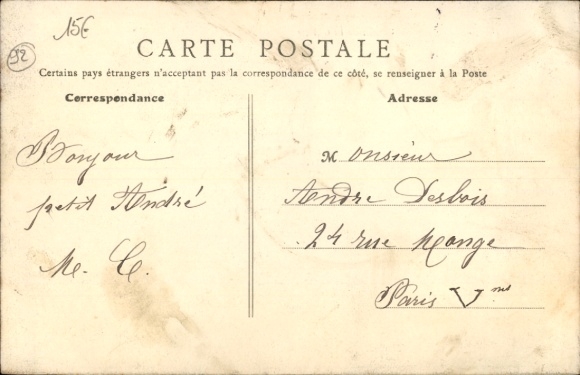 15€
92
CARTE POSTALE
Certains pays étrangers n'acceptant pas la correspondance de ce côté, se renseigner à la Poste
Correspondance
Adresse
Bonjour
petit André
M. C.
Monsieur
Andre Desbois
24 rue Monge
Paris V me